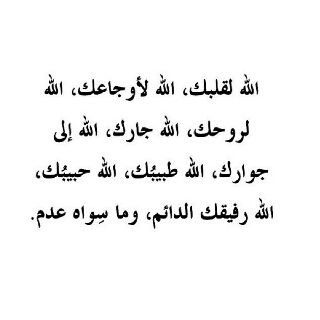 الله لقلبك، الله لأوجاعك، الله
لروحك، الله جارك، الله إلى
جوارك، الله طبيبُك، الله حبيبُك،
الله رفيقك الدائم، وما سِواه عدم.